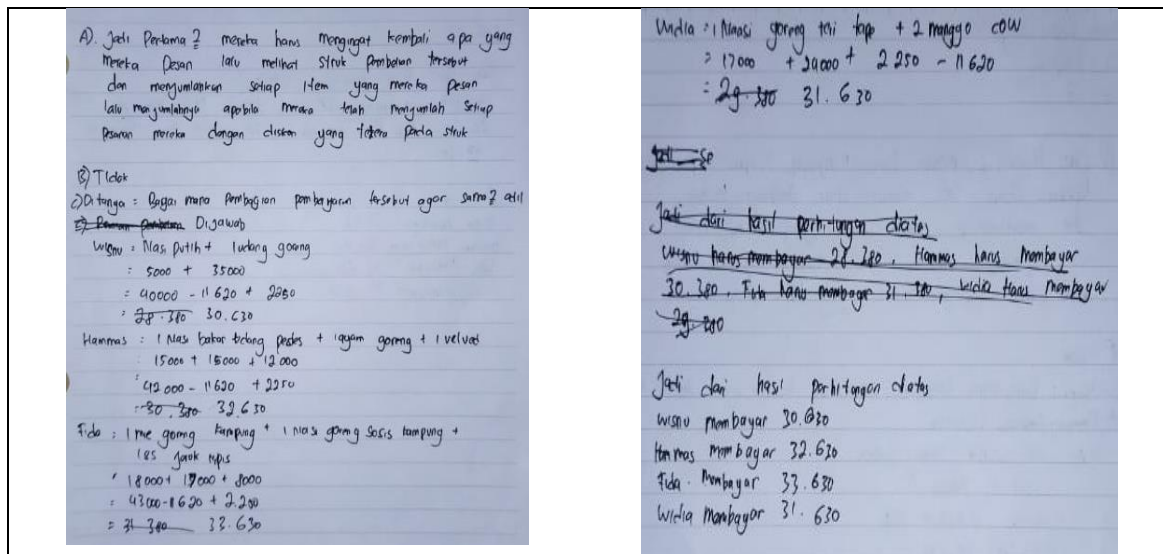 A). Jadi Pertama2 mereka harus mengingat kembali apa yang
mereka Pesan lalu melihat struk pembelian tersebut
dan menjumlahkan setiap item yang mereka pesan
lalu menjumlahnya apabila mereka telah menjumlah setiap
Pesanan mereka dengan diskon yang tertera pada struk
B) Tidak
C) Ditanya = Bagai mana Pembagian pembayaran tersebut agar sama2 adil
Dijawab
Wisnu = Nasi Putih + 1 udang goreng
= 5000 + 35000
= 40000 - 11620 + 2250
= 28.380 30.630
Hammas : 1 Nasi bakar tidang pedes + 1 ayam goreng + 1 velvet
: 15000 + 15000 + 12000
: 42000 - 11620 + 2250
: 30.380 32.630
Fida : 1 me goreng kampung + 1 Nasi goreng Sosis kampung +
Jeruk nipis
: 18000 + 17000 + 8000
= 43000 - 11620 + 2.250
= 31.380 33.630
Widia = 1 Naasi goreng teri tape + 2 manggo cow
= 17000 + 24000 + 2 250 - 11620
= 29.380 31.630
Jadi
Jadi dari hasil perhitungan diatas
Wisnu harus membayar 28.380, Hammas harus membayar
30.380, Fida harus membayar 31.380, Widia Harus membayar
29.380
Jadi dari hasil perhitungan diatas
Wisnu membayar 30.630
Hammas membayar 32.630
Fida membayar 33.630
Widia membayar 31.630